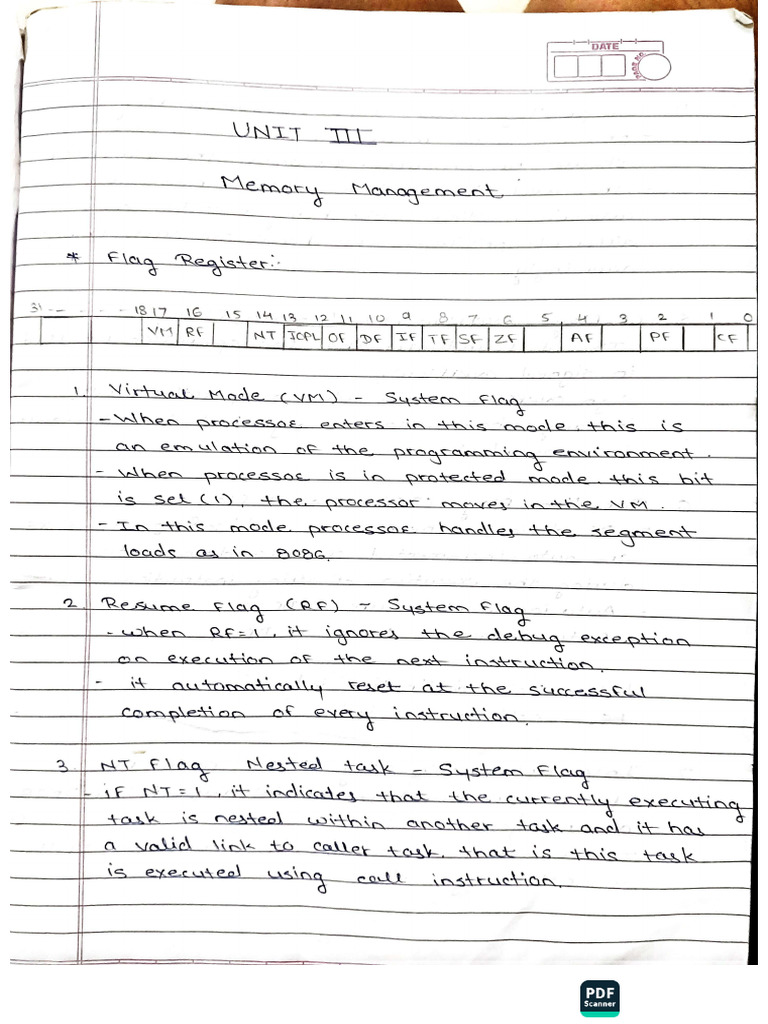 DATE
UNIT III
Memory Management
* Flag Register:-
31 - - - - 18 17 16 15 14 13 12 11 10 9 8 7 6 5 4 3 2 1 0
VM RF NT IOPL OF DF IF TF SF ZF AF PF CF
1. Virtual Mode (VM) - System Flag
- When processor enters in this mode this is
an emulation of the programming environment.
- When processor is in protected mode this bit
is set (1), the processor moves in the VM.
- In this mode processor handles the segment
loads as in 8086.
2 Resume Flag (RF) - System Flag
- when RF=1, it ignores the debug exception
on execution of the next instruction.
- it automatically reset at the successful
completion of every instruction.
3 NT Flag Nested task - System Flag
- if NT=1, it indicates that the currently executing
task is nested within another task and it has
a valid link to caller task, that is this task
is executed using call instruction.
PDF
Scanner